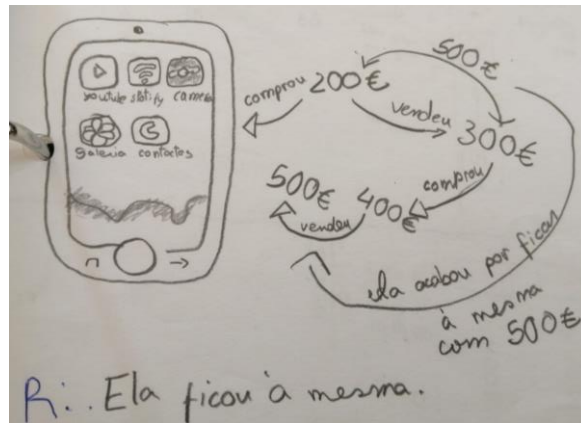 youtube spotify camera
galeria contactos
comprou 200€
vendeu 300€
500€
comprou 400€
vendeu 500€
ela acabou por ficar
à mesma
com 500€
R:.. Ela ficou à mesma.